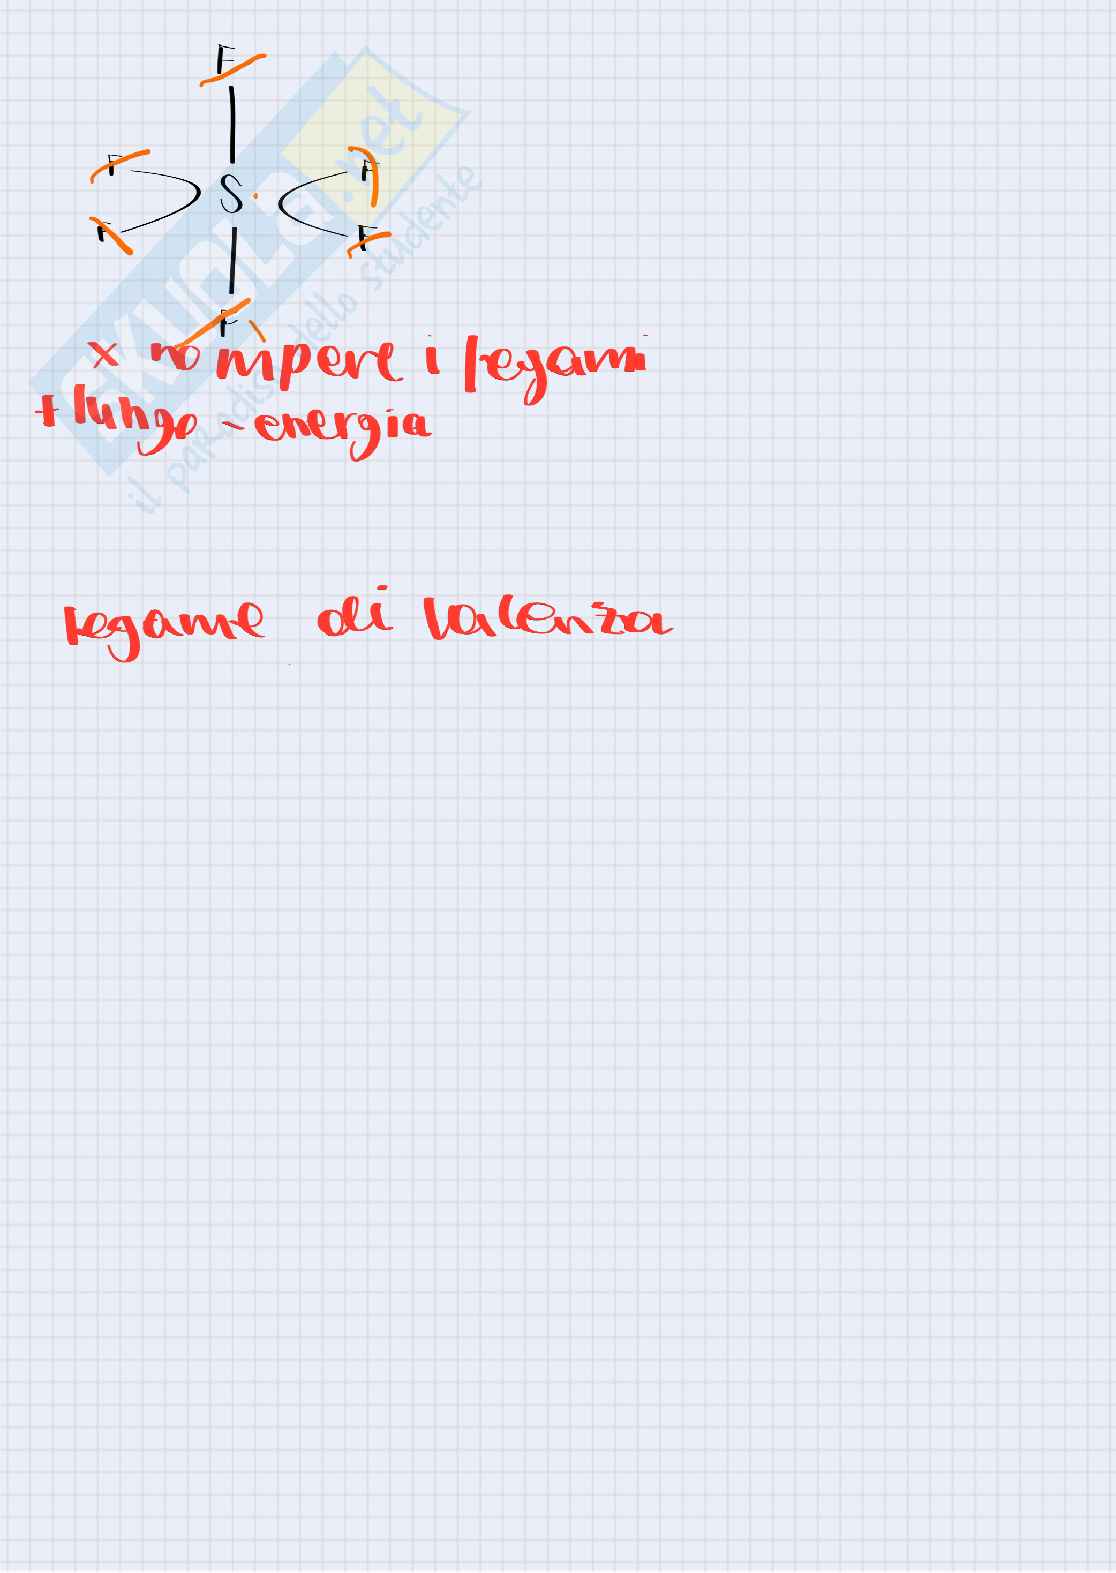 F
F F
S
F F
F
x rompere i legami
+ lungo - energia
legame di valenza
SKUOLA.net
il paradiso dello studente